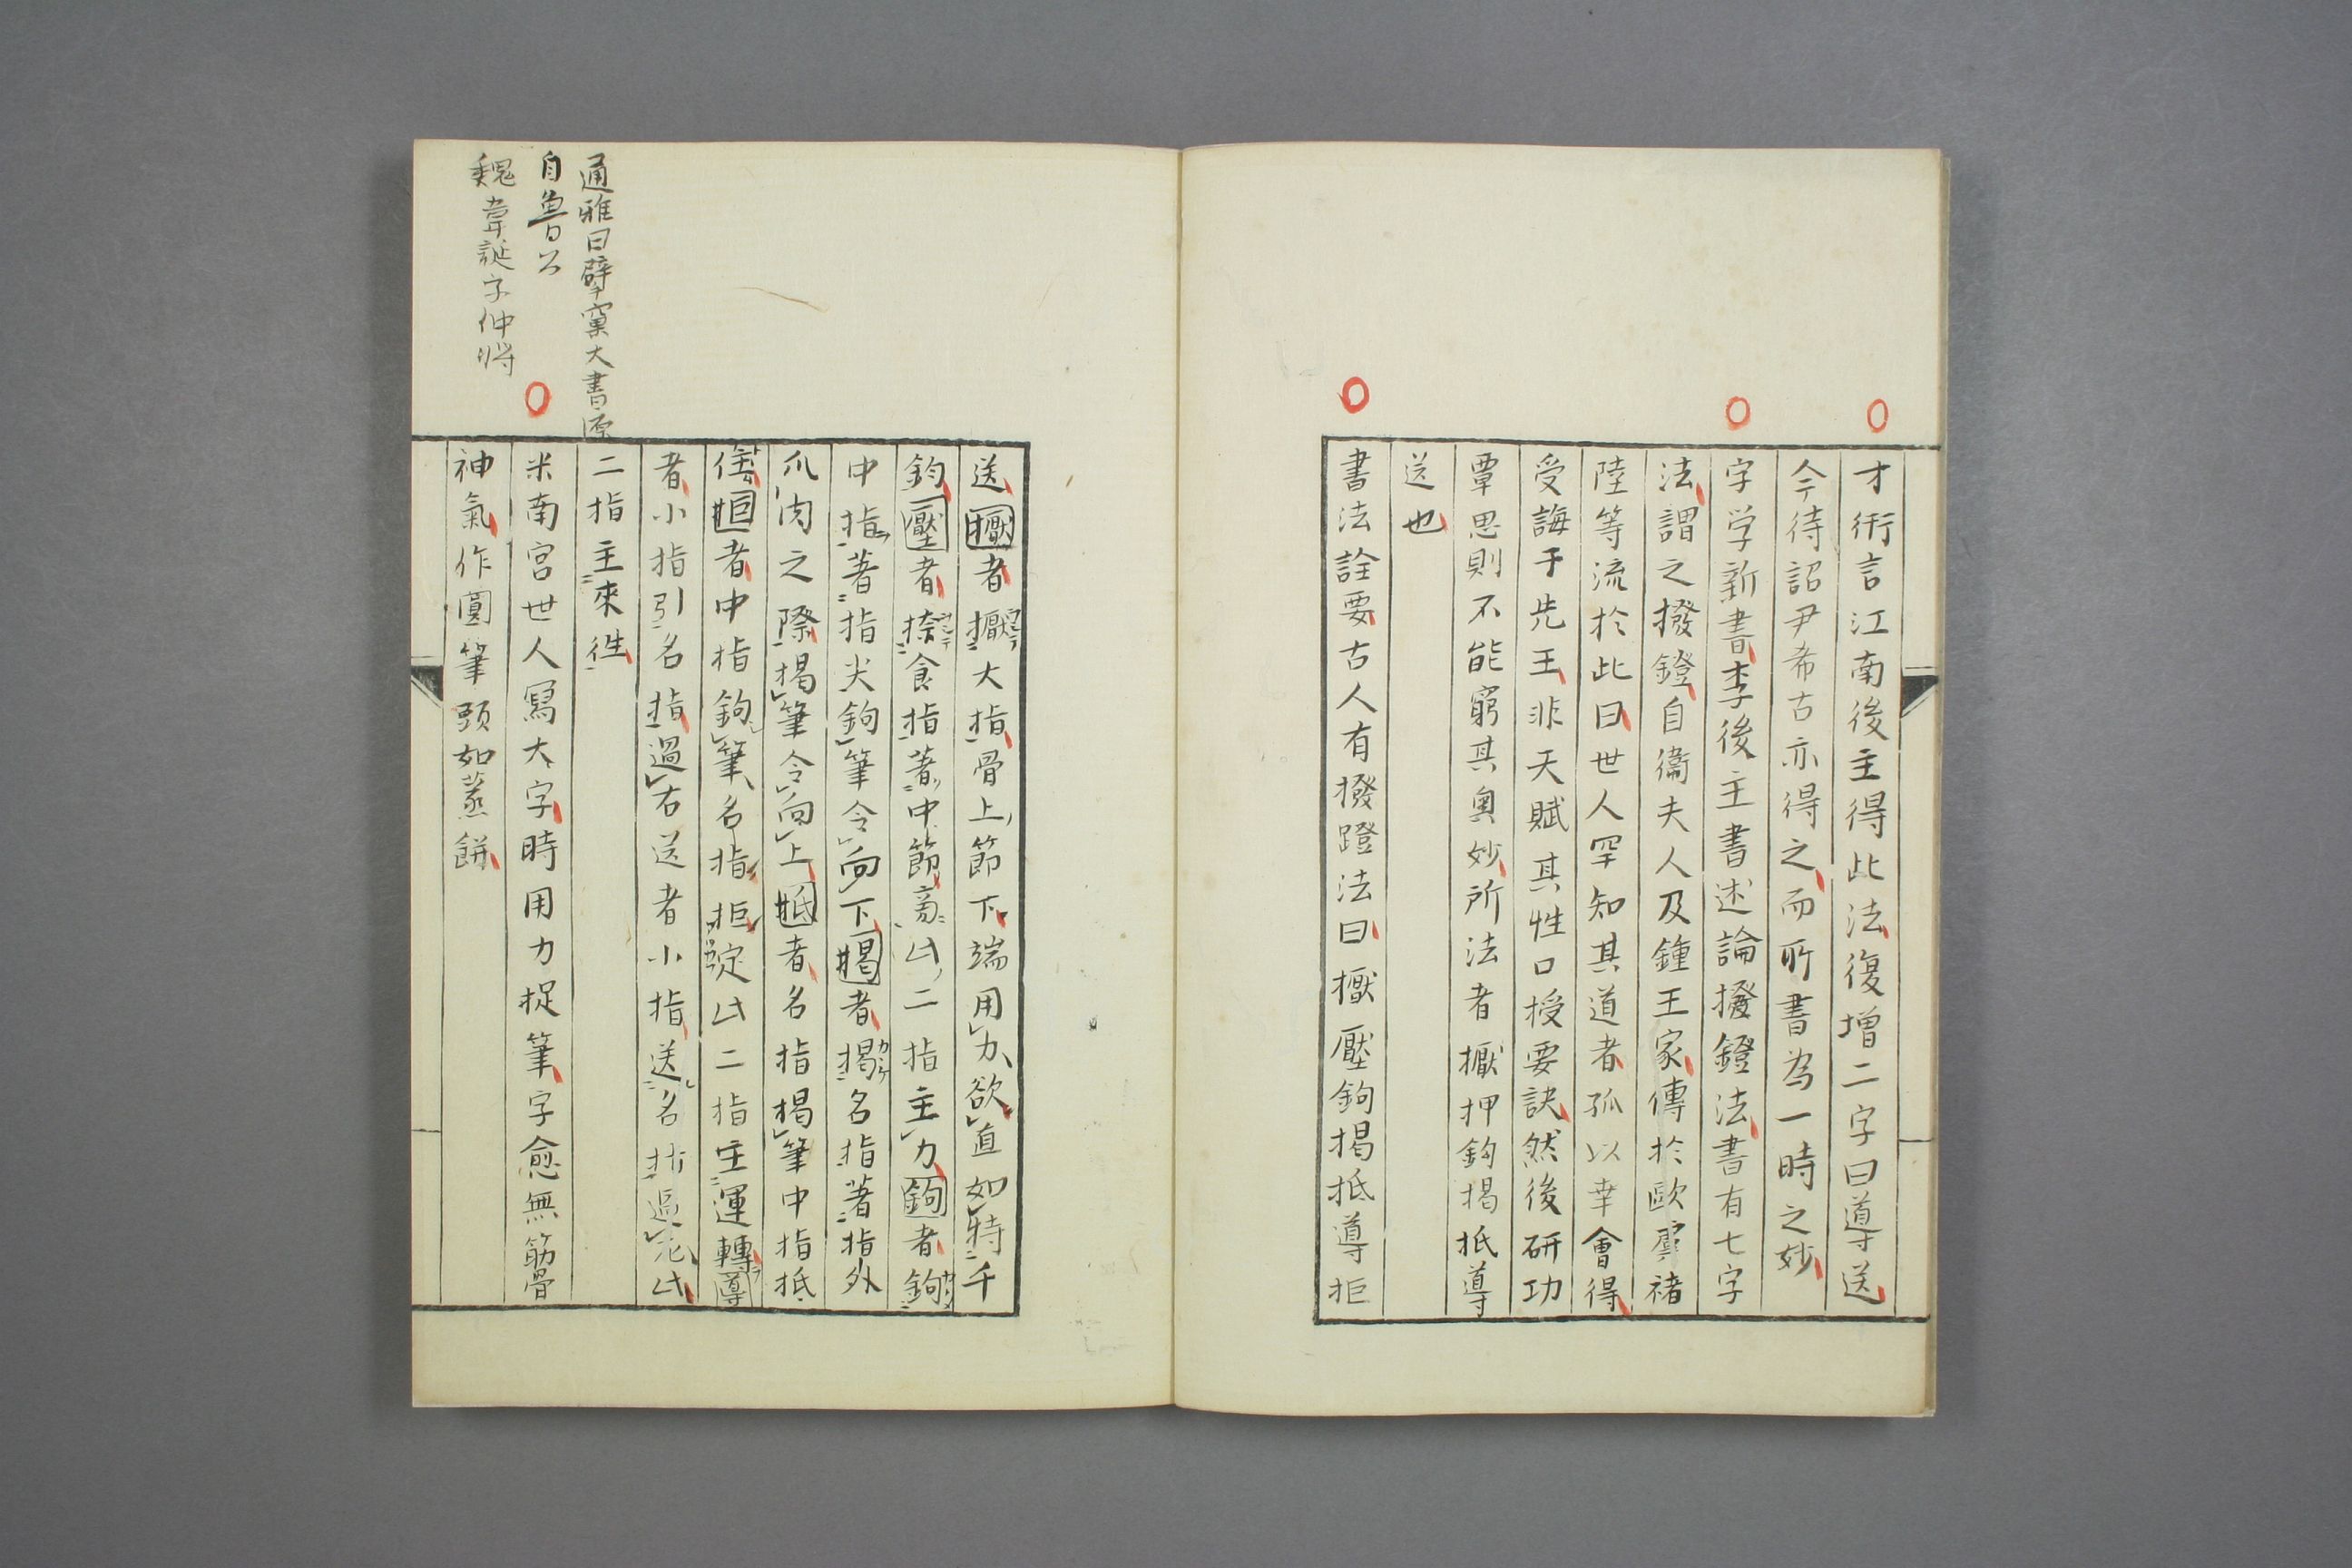 才術言江南後主得此法復増二字曰導送
今待詔尹希古亦得之而所書為一時之妙
字学新書李後主書述論撥鐙法書有七字
法謂之撥鐙自衞夫人及鍾王家傳於歐虞褚
陸等流於此曰世人罕知其道者孤以幸會得
受誨于先王非天賦其性口授要訣然後研功
覃思則不能窮其奧妙所法者擫押鈎揭抵導
送也
書法詮要古人有撥蹬法曰擫壓鉤揭抵導拒
送擫者擫大指骨上節下端用力欲直如特千
鈞壓者捺食指著中節旁此二指主力鉤者鉤
中指著指尖鉤筆令向下揭者揭名指著指外
爪肉之際揭筆令向上抵者名指揭筆中指抵
住拒者中指鉤筆名指拒定此二指主運轉導
者小指引名指過右送者小指送名指過左此
二指主來徃
米南宮世人寫大字時用力捉筆字愈無筋骨
神氣作圓筆頭如蒸餅
通雅曰擘窠大書源
自魯公
魏韋誕字仲將